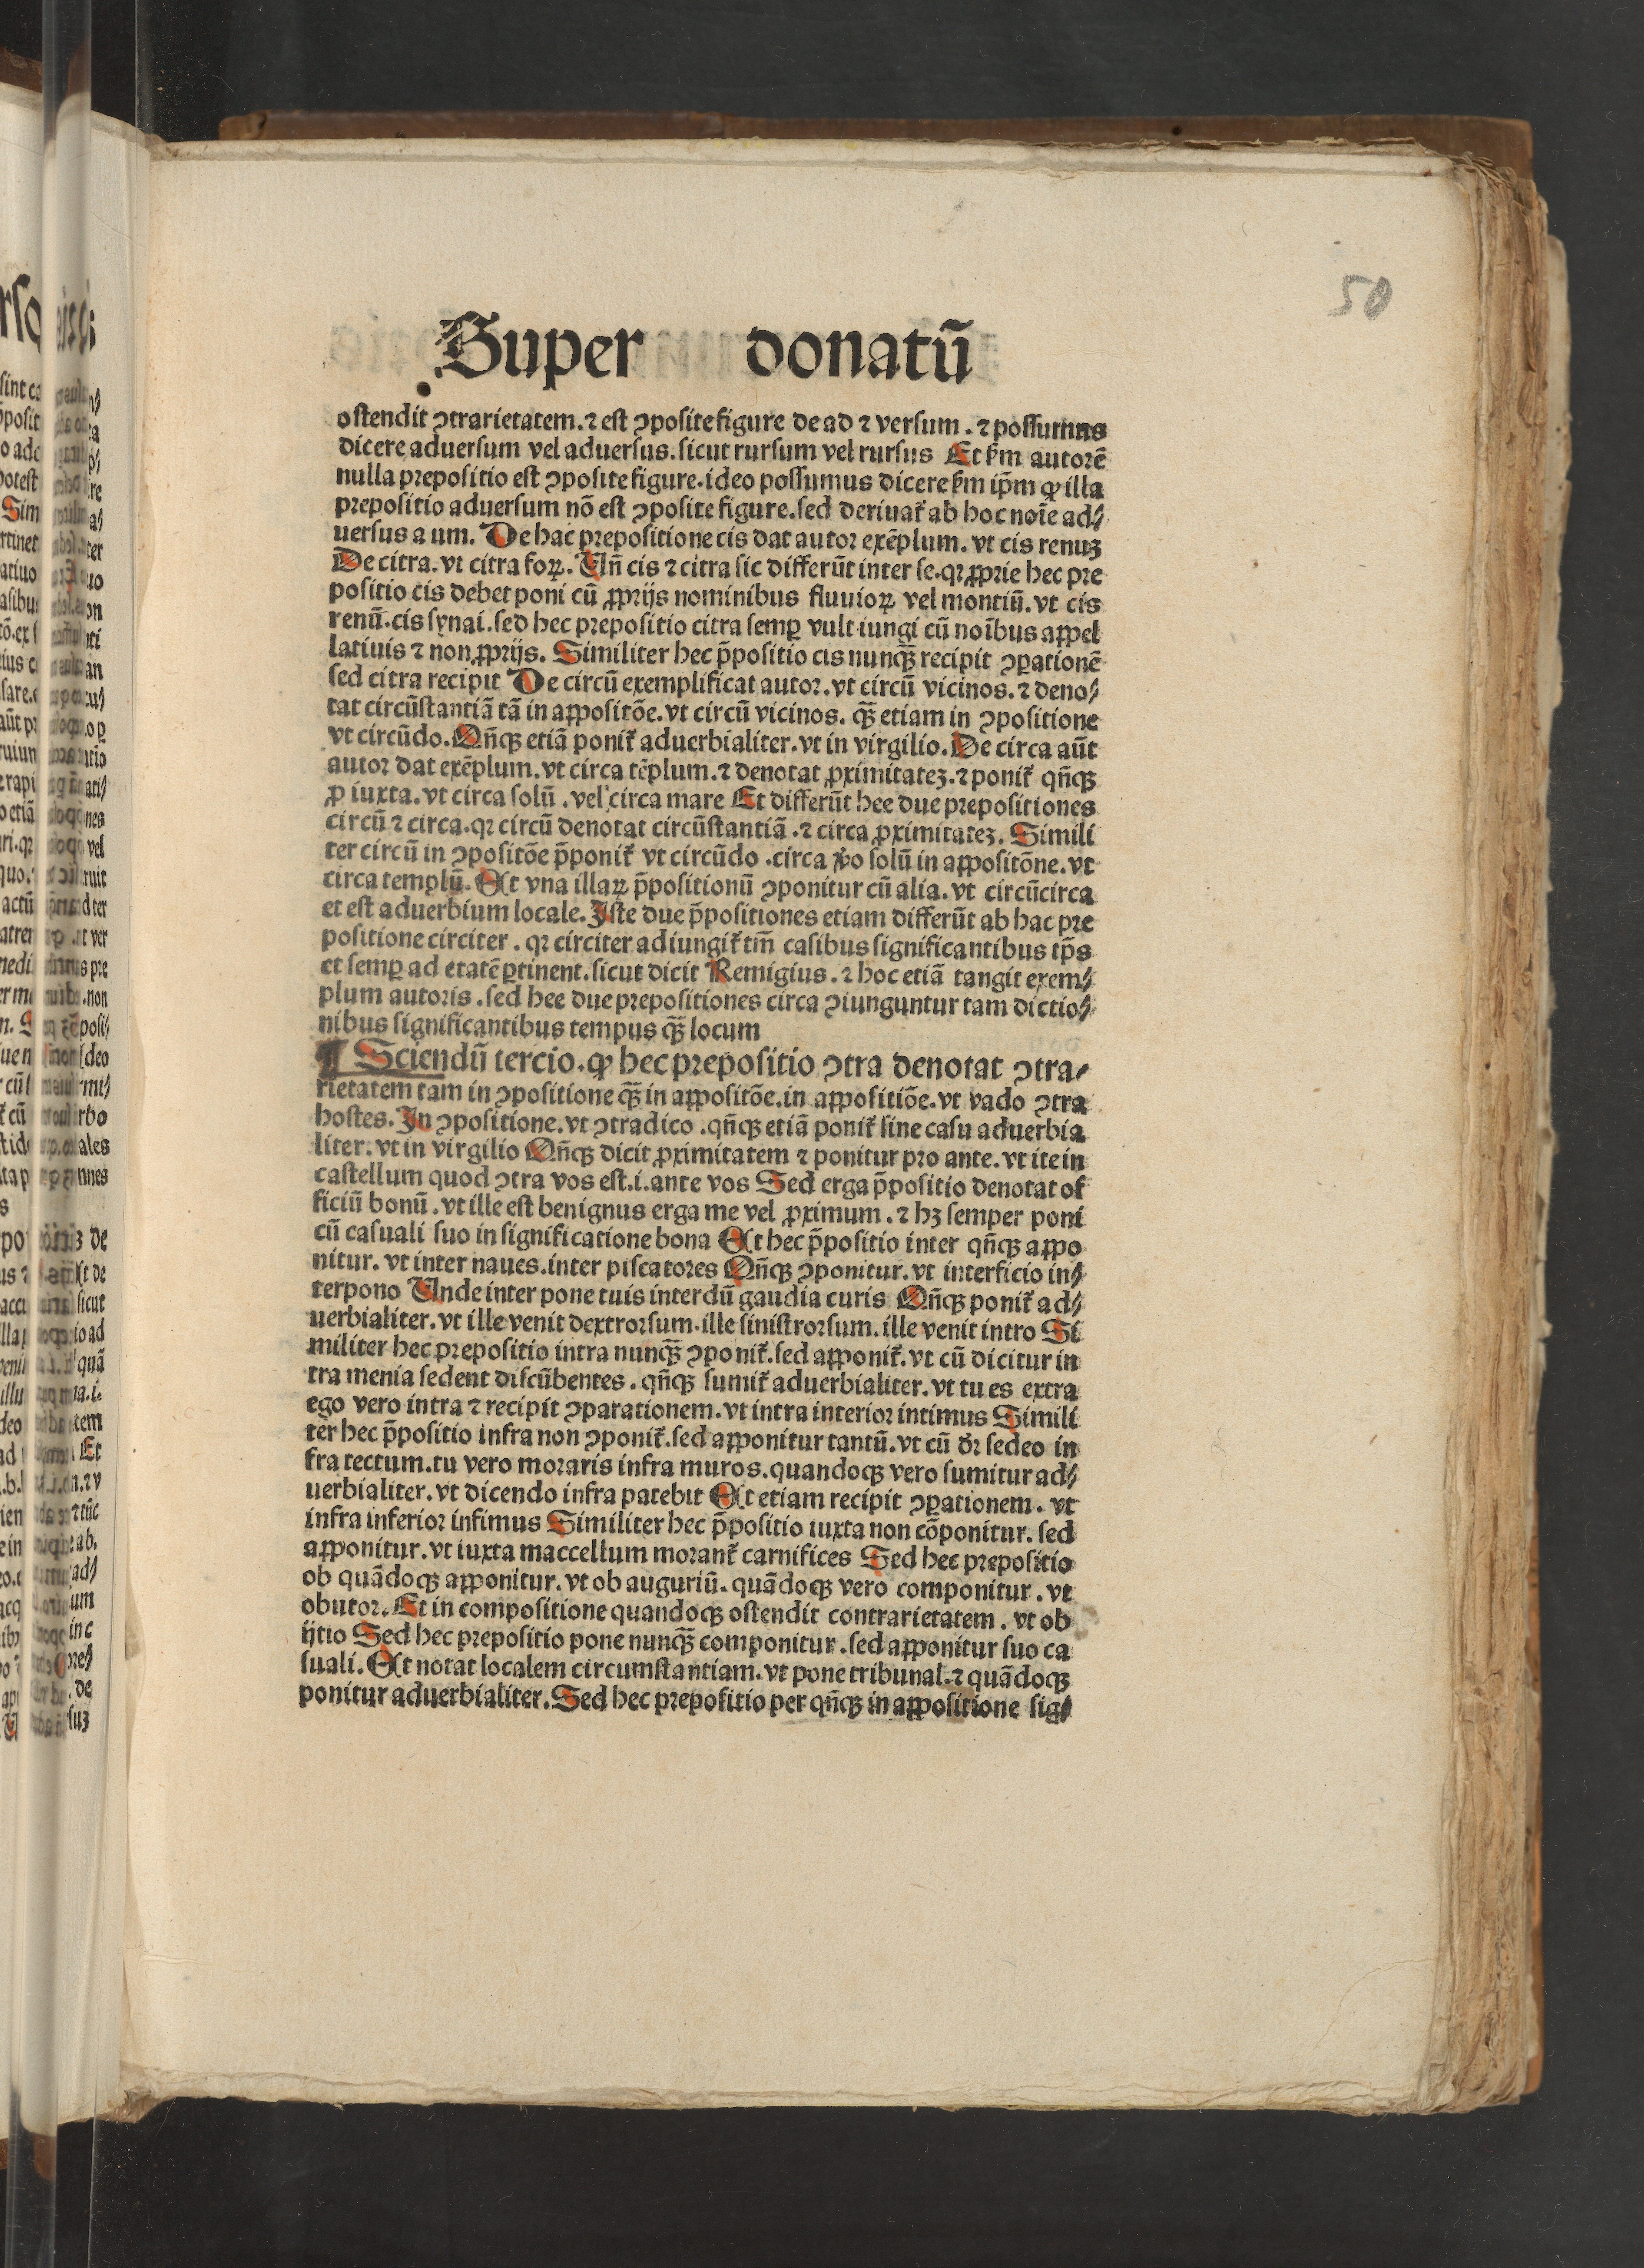 50
Super donatū
ostendit ꝯtrarietatem. ⁊ est ꝯposite figure de ad ⁊ versum. ⁊ possumus
dicere aduersum vel aduersus. sicut rursum vel rursus Et ẜm autorē
nulla prepositio est ꝯposite figure. ideo possumus dicere ẜm ip̄m ꝙ illa
prepositio aduersum nō est ꝯposite figure. sed deriuat᷑ ab hoc noīe ad⸗
uersus a um. De hac prepositione cis dat autor exēplum. vt cis renuꝫ
De citra. vt citra foꝝ. Vn̄ cis ⁊ citra sic differūt inter se. qꝛ ꝓprie hec pre
positio cis debet poni cū ꝓprijs nominibus fluuioꝝ vel montiū. vt cis
renū. cis synai. sed hec prepositio citra semꝑ vult iungi cū noībus appel
latiuis ⁊ non ꝓprijs. Similiter hec p̄positio cis nunqꝫ̄ recipit ꝯꝑationē
sed citra recipit De circū exemplificat autor. vt circū vicinos. ⁊ deno⸗
tat circūstantiā tā in appositōe. vt circū vicinos. qꝫ̄ etiam in ꝯpositione
vt circūdo. Qn̄qꝫ etiā ponit᷑ aduerbialiter. vt in virgilio. De circa aūt
autor dat exēplum. vt circa tēplum. ⁊ denotat ꝓximitateꝫ. ⁊ ponit᷑ qn̄qꝫ
ꝓ iuxta. vt circa solū. vel circa mare Et differūt hee due prepositiones
circū ⁊ circa. qꝛ circū denotat circūstantiā. ⁊ circa ꝓximitateꝫ. Simili
ter circū in ꝯpositōe p̄ponit᷑ vt circūdo. circa ꝟo solū in appositōne. vt
circa templū. Et vna illaꝝ p̄positionū ꝯponitur cū alia. vt circūcirca
et est aduerbium locale. Iste due p̄positiones etiam differūt ab hac pre
positione circiter. qꝛ circiter adiungit᷑ tm̄ casibus significantibus tp̄s
et semꝑ ad etatē ꝑtinent. sicut dicit Remigius. ⁊ hoc etiā tangit exem⸗
plum autoris. sed hee due prepositiones circa ꝯiunguntur tam dictio⸗
nibus significantibus tempus qꝫ̄ locum
¶ Sciendū tercio. ꝙ hec prepositio ꝯtra denotat ꝯtra⸗
rietatem tam in ꝯpositione qꝫ̄ in appositōe. in appositiōe. vt vado ꝯtra
hostes. In ꝯpositione. vt ꝯtradico. qn̄qꝫ etiā ponit᷑ sine casu aduerbia
liter. vt in virgilio Qn̄qꝫ dicit ꝓximitatem ⁊ ponitur pro ante. vt ite in
castellum quod ꝯtra vos est. i. ante vos Sed erga p̄positio denotat of
ficiū bonū. vt ille est benignus erga me vel ꝓximum. ⁊ hꝫ semper poni
cū casuali suo in significatione bona Et hec p̄positio inter qn̄qꝫ appo
nitur. vt inter naues. inter piscatores Qn̄qꝫ ꝯponitur. vt interficio in⸗
terpono Vnde inter pone tuis interdū gaudia curis Qn̄qꝫ ponit᷑ ad⸗
uerbialiter. vt ille venit dextrorsum. ille sinistrorsum. ille venit intro Si
militer hec prepositio intra nunqꝫ̄ ꝯponit᷑. sed apponit᷑. vt cū dicitur in
tra menia sedent discūbentes. qn̄qꝫ sumit᷑ aduerbialiter. vt tu es extra
ego vero intra ⁊ recipit ꝯparationem. vt intra interior intimus Simili
ter hec p̄positio infra non ꝯponit᷑. sed apponitur tantū. vt cū dr̄ sedeo in
fra tectum. tu vero moraris infra muros. quandoqꝫ vero sumitur ad⸗
uerbialiter. vt dicendo infra patebit Et etiam recipit ꝯꝑationem. vt
infra inferior infimus Similiter hec p̄positio iuxta non cōponitur. sed
apponitur. vt iuxta maccellum morant᷑ carnifices Sed hec prepositio
ob quādoqꝫ apponitur. vt ob auguriū. quādoqꝫ vero componitur. vt
obutor. Et in compositione quandoqꝫ ostendit contrarietatem. vt ob
ijtio Sed hec prepositio pone nunqꝫ̄ componitur. sed apponitur suo ca
suali. Et notat localem circumstantiam. vt pone tribunal. ⁊ quādoqꝫ
ponitur aduerbialiter. Sed hec prepositio per qn̄qꝫ in appositione sig⸗